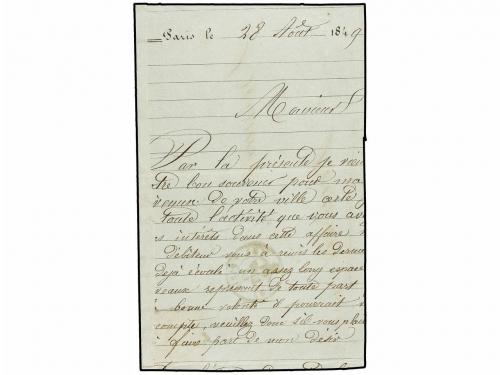 Paris le 28 Août 1849
Monsieur
Par la présente je viens
tre bon souvenir pour ma
venue de votre ville cette
toute l'activité que vous av
s intérêts dans cette affaire
débiteur vous à remis les
déjà écoulé un assez long espace
veaux reprenent de toute part
à bonne volonté il pourrait
compte, veuillez donc s'il vous plai
à faire part de mon désir